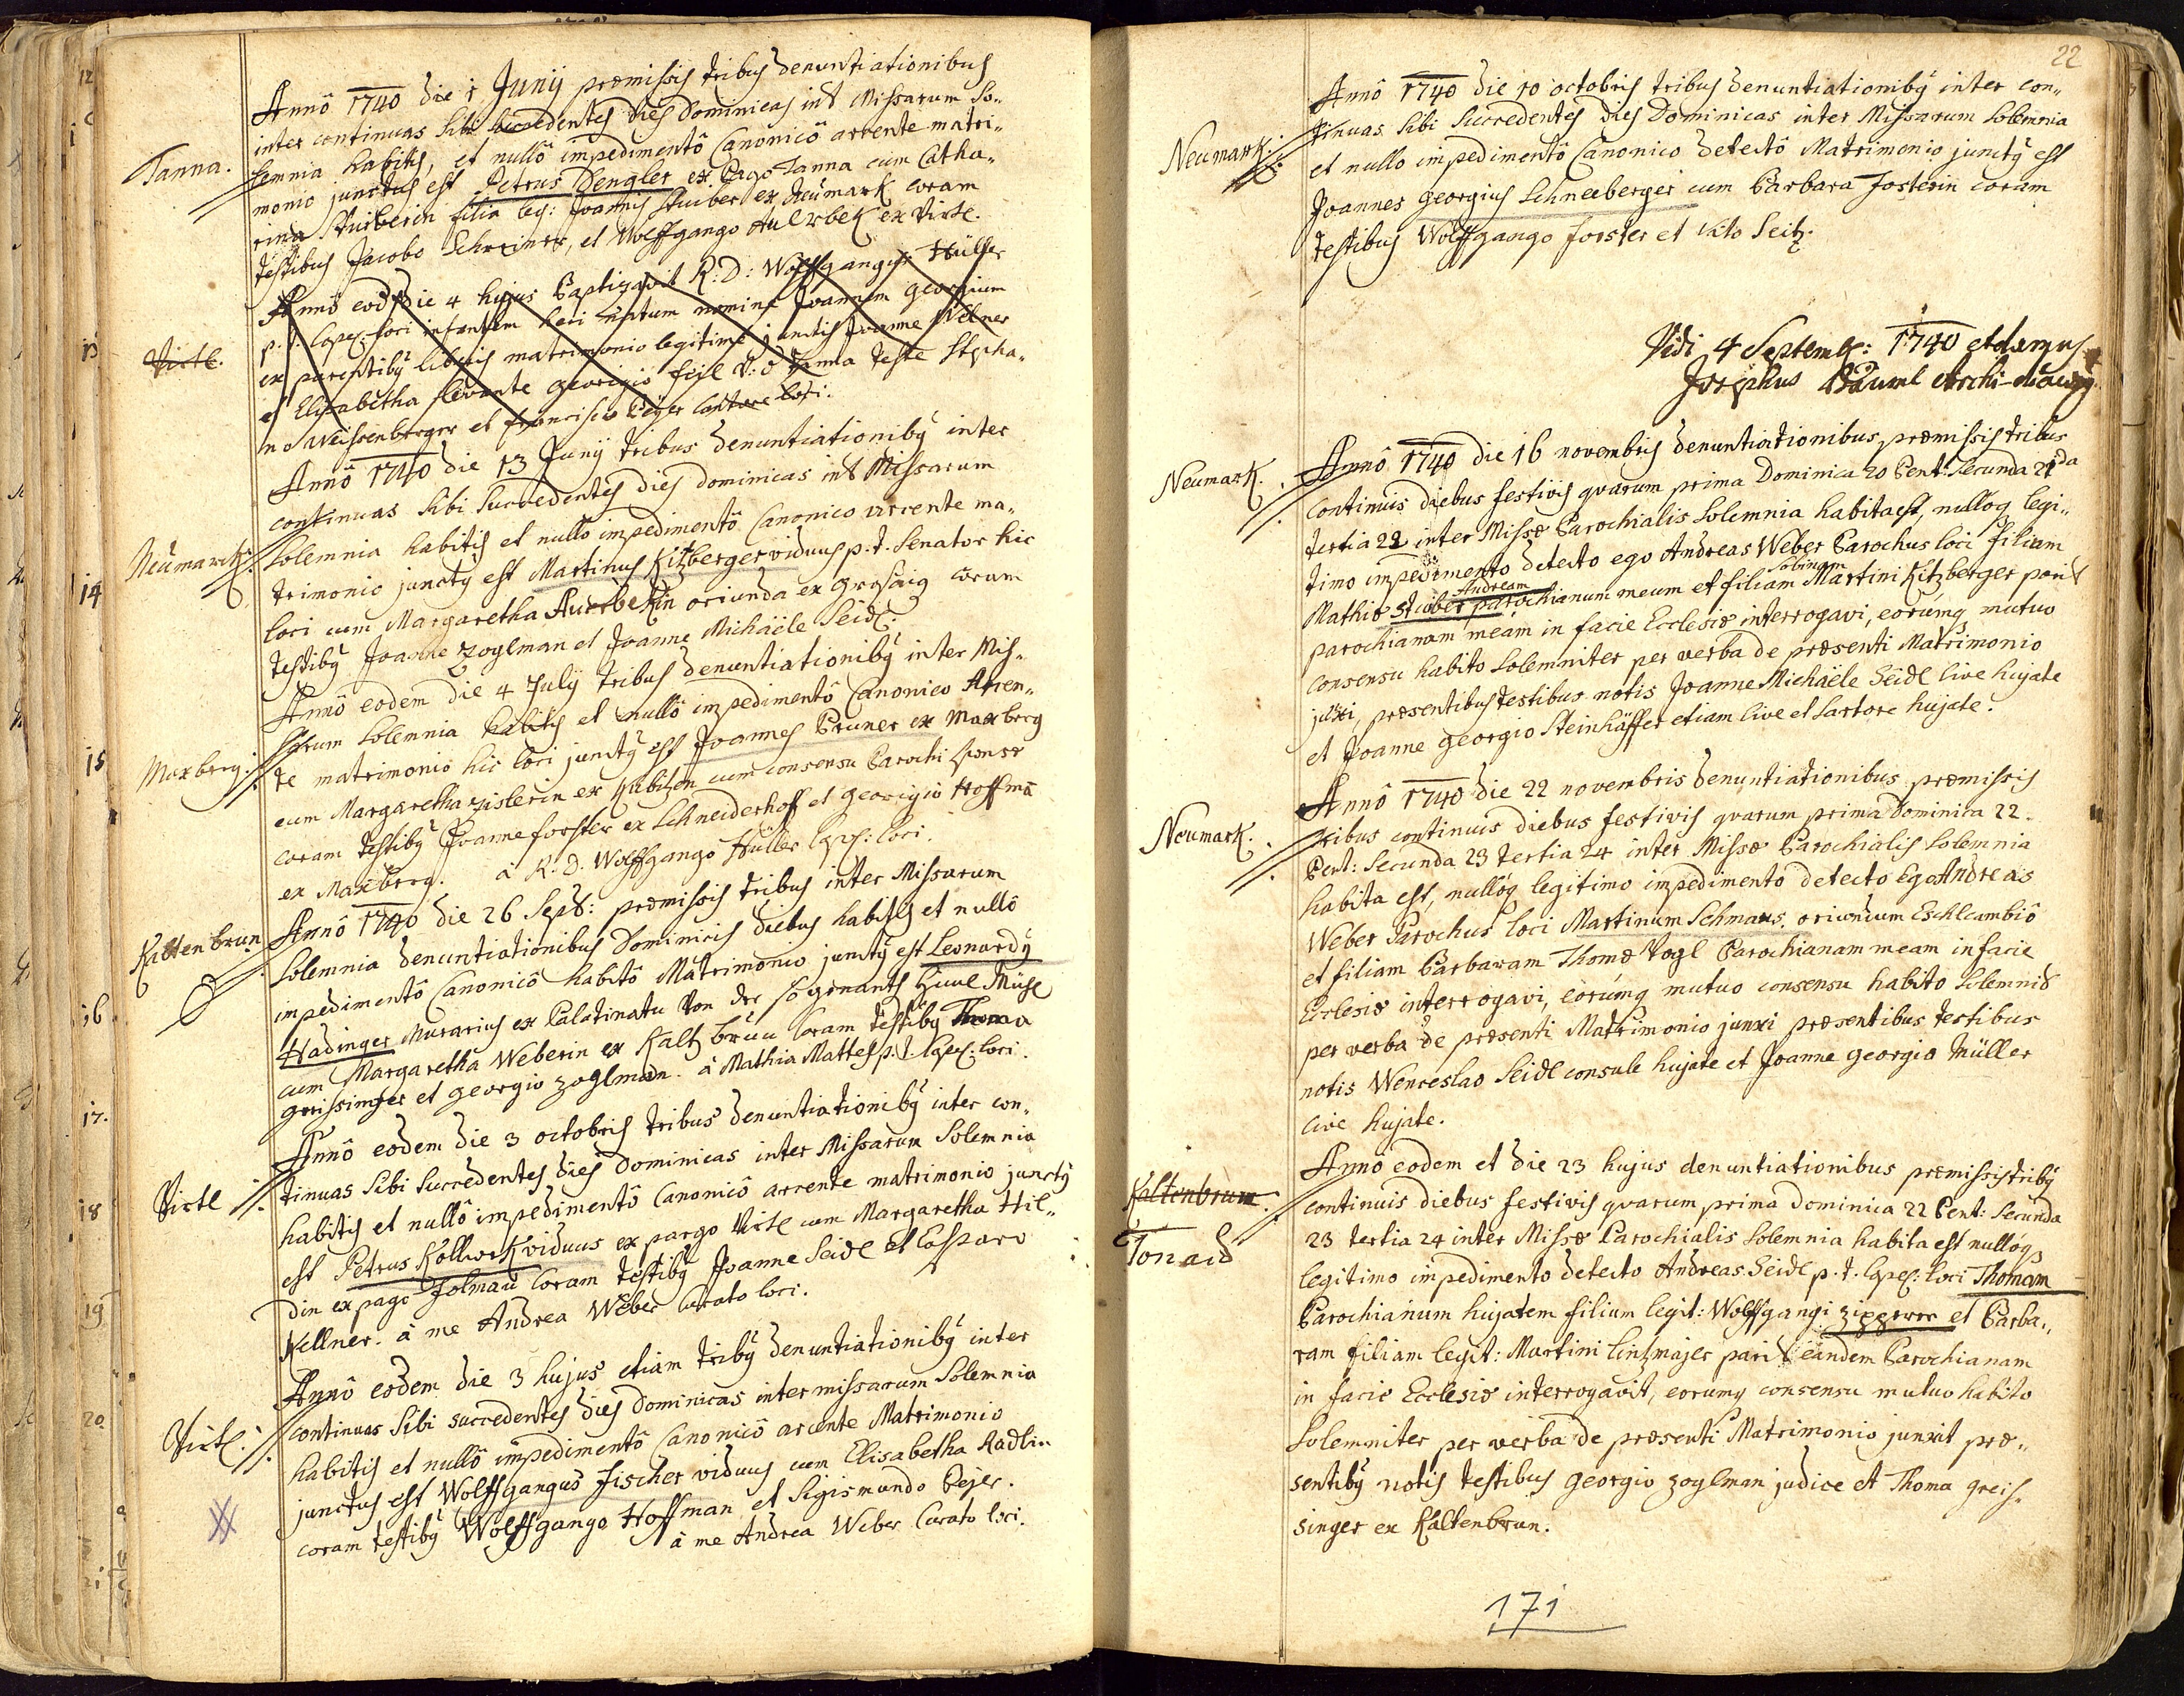 Tanna.
Annô 1740 die 1 Junij præmissis tribus denuntiationibus
inter continuas sibi succedentes dies Dominicas int Missarum So„
lemnia habitis, et nullô impedimentô Canonicô arcente matri„
monio junctus est Petrus Dengler ex Pago Tanna cum Catha„
rina Stuiberin filia leg: Joannis Stuiber ex Neumark coram
testibus Jacobo Schreiner, et Wolffgango Aulzbek ex Virtl.
Virtl.
Annô eodem die 4 hujus Baptizavit R: D: Wolffgangus Hüller
p. t. Capel: loci infantem heri natum nomine Joannem Georgium
ex parentibq liberis matrimonio legitime junctis Joanne Wellner
et Elisabetha levante Georigio feil V: ô Tanna teste Stepha„
no Weissenberger et Francisco Peyer Cantore loci.
Neumarck.
Annô 1740 die 13 Junij tribus denuntiationibq inter
continuas sibi succedentes dies dominicas int Missarum
Solemnia habitis et nullo impedimentô Canonico arcente ma„
trimonio junctq est Martinus Kitzberger viduus p. t. Senator hic
loci cum Margaretha Auerbekin oriunda ex Grosaig coram
testibq Joanne Zoglman et Joanne Michaële Seidl.
Maxberg.
Annô eodem die 4 Julij tribus denuntiationibq inter Mis„
sarum Solemnia habitis et nullô impedimentô Canonico Arcen„
te matrimonio hic loci junctq est Joannes Pruner ex Maxberg
cum Margaretha Zislerin ex Kubizen cum consensu Parochi sponsæ
coram testibq Joanne forster ex Schneiderhoff et Georigio Hoffmā
ex Maxberg. à R. D. Wolffgango Hüller Capel: loci.
Kaltenbrun
Annô 1740 die 26 Sept: præmissis tribus inter Missarum
Solemnia denuntiationibus Dominicis diebus habitis et nullô
impedimentô Canonicô habitô Matrimonio junctq est Leonardq
Hadinger Murarius ex Palatinatu von der sogenants Mühl
cum Margaretha Weberin ex Kaltbrun Coram testibq Thoma
Greissinger et Georgio Zoglman. à Mathia Mattes p. t. Capel: loci.
Virtl
Annô eodem die 3 octobris tribus denuntiationibq inter con„
tinuas sibi succedentes dies Dominicas inter Missarum Solemnia
habitis et nullô impedimentô Canonicô arcente matrimonio junctq
est Petrus Kollwek viduus ex pargo Virtl cum Margaretha Hil„
din ex pago Folmau Coram testibq Joanne Seidl et Casparo
Kellner. à me Andrea Weber Curato loci.
Virtl.
Annô eodem die 3 hujus etiam tribq denuntiationibq inter
continuas sibi succedentes dies dominicas inter missarum Solemnia
habitis et nullô impedimentô Canonicô arcente Matrimonio
junctus est Wolffgangus Fischer viduus cum Elisabetha Radlin
coram testibq Wolffgango Hoffman et Sigismundo Pejer.
à me Andrea Weber Curato loci.
22
Neumark.
Annô 1740 die 10 octobris tribus denuntiationibq inter con„
tinuas sibi succedentes dies Dominicas inter Missarum Solemnia
et nullo impedimentô Canonico detectô Matrimonio junctq est
Joannes Georgius Schneeberger cum Barbara Fosterin coram
testibus Wolffgango forster et Vito Seitz.
Vidi 4 Septemb: 1740
Josephus Bäuml Archi-diacq
Neumark.
Annô 1740 die 16 novembris denuntiationibus præmissis tribus
continuis diebus festivis qvarum prima Dominica 20 Pent: Secunda 21da
tertia 22 inter Missæ Parochialis Solemnia habita est, nulloq legi„
timo impedimento detecto ego Andreas Weber Parochus loci filium
Andream Sabinam
Mathiæ Stuiber parochianum meum et filiam Martini Kitzberger parit
parochianam meam in facie Ecclesiæ interrogavi, eorumq mutuo
consensu habito Solemniter per verba de præsenti Matrimonio
juxi, præsentibus testibus notis Joanne Michaële Seidl Cive hujate
et Joanne Georgio Steinhäffer etiam Cive et Sartore hujate.
Neumark.
Annô 1740 die 22 novembris denuntiationibus præmissis
tribus continuis diebus festivis qvarum prima Dominica 22
Pent: Secunda 23 tertia 24 inter Missæ Parochialis Solemnia
habita est, nulloq legitimo impedimento detecto Ego Andreas
Weber Parochus loci Martinum Schmaus, oriundum Eschlcambio
et filiam Barbaram Thomæ Vogl Parochianam meam in facie
Ecclesiæ interrogavi, eorumq mutuo consensu habito Solemnit
per verba de præsenti Matrimonio junxi præsentibus testibus
notis Wenceslao Seidl consule hujate et Joanne Georgio Müller
cive hujate.
Kaltenbrum
Tonaid
Annô eodem et die 23 hujus denuntiationibus præmissis tribq
continuis diebus festivis qvarum prima Dominica 22 Pent: Secunda
23 tertia 24 inter Missæ Parochialis Solemnia habita est nulloq
legitimo impedimento detecto Andreas Seidl p. t. Capel: loci Thomam
Parochianum hujatem filium legit: Wolffgangi Zipperer et Barba„
ram filiam legit: Martini Lintzmajer parit eandem Parochianam
in facie Ecclesiæ interrogavit, eorumq consensu mutuo habito
Solemniter per verba de præsenti Matrimonio junxit præ„
sentibq notis testibus Georgio Zoglman judice et Thoma Greis„
singer ex Kaltenbrun.
171